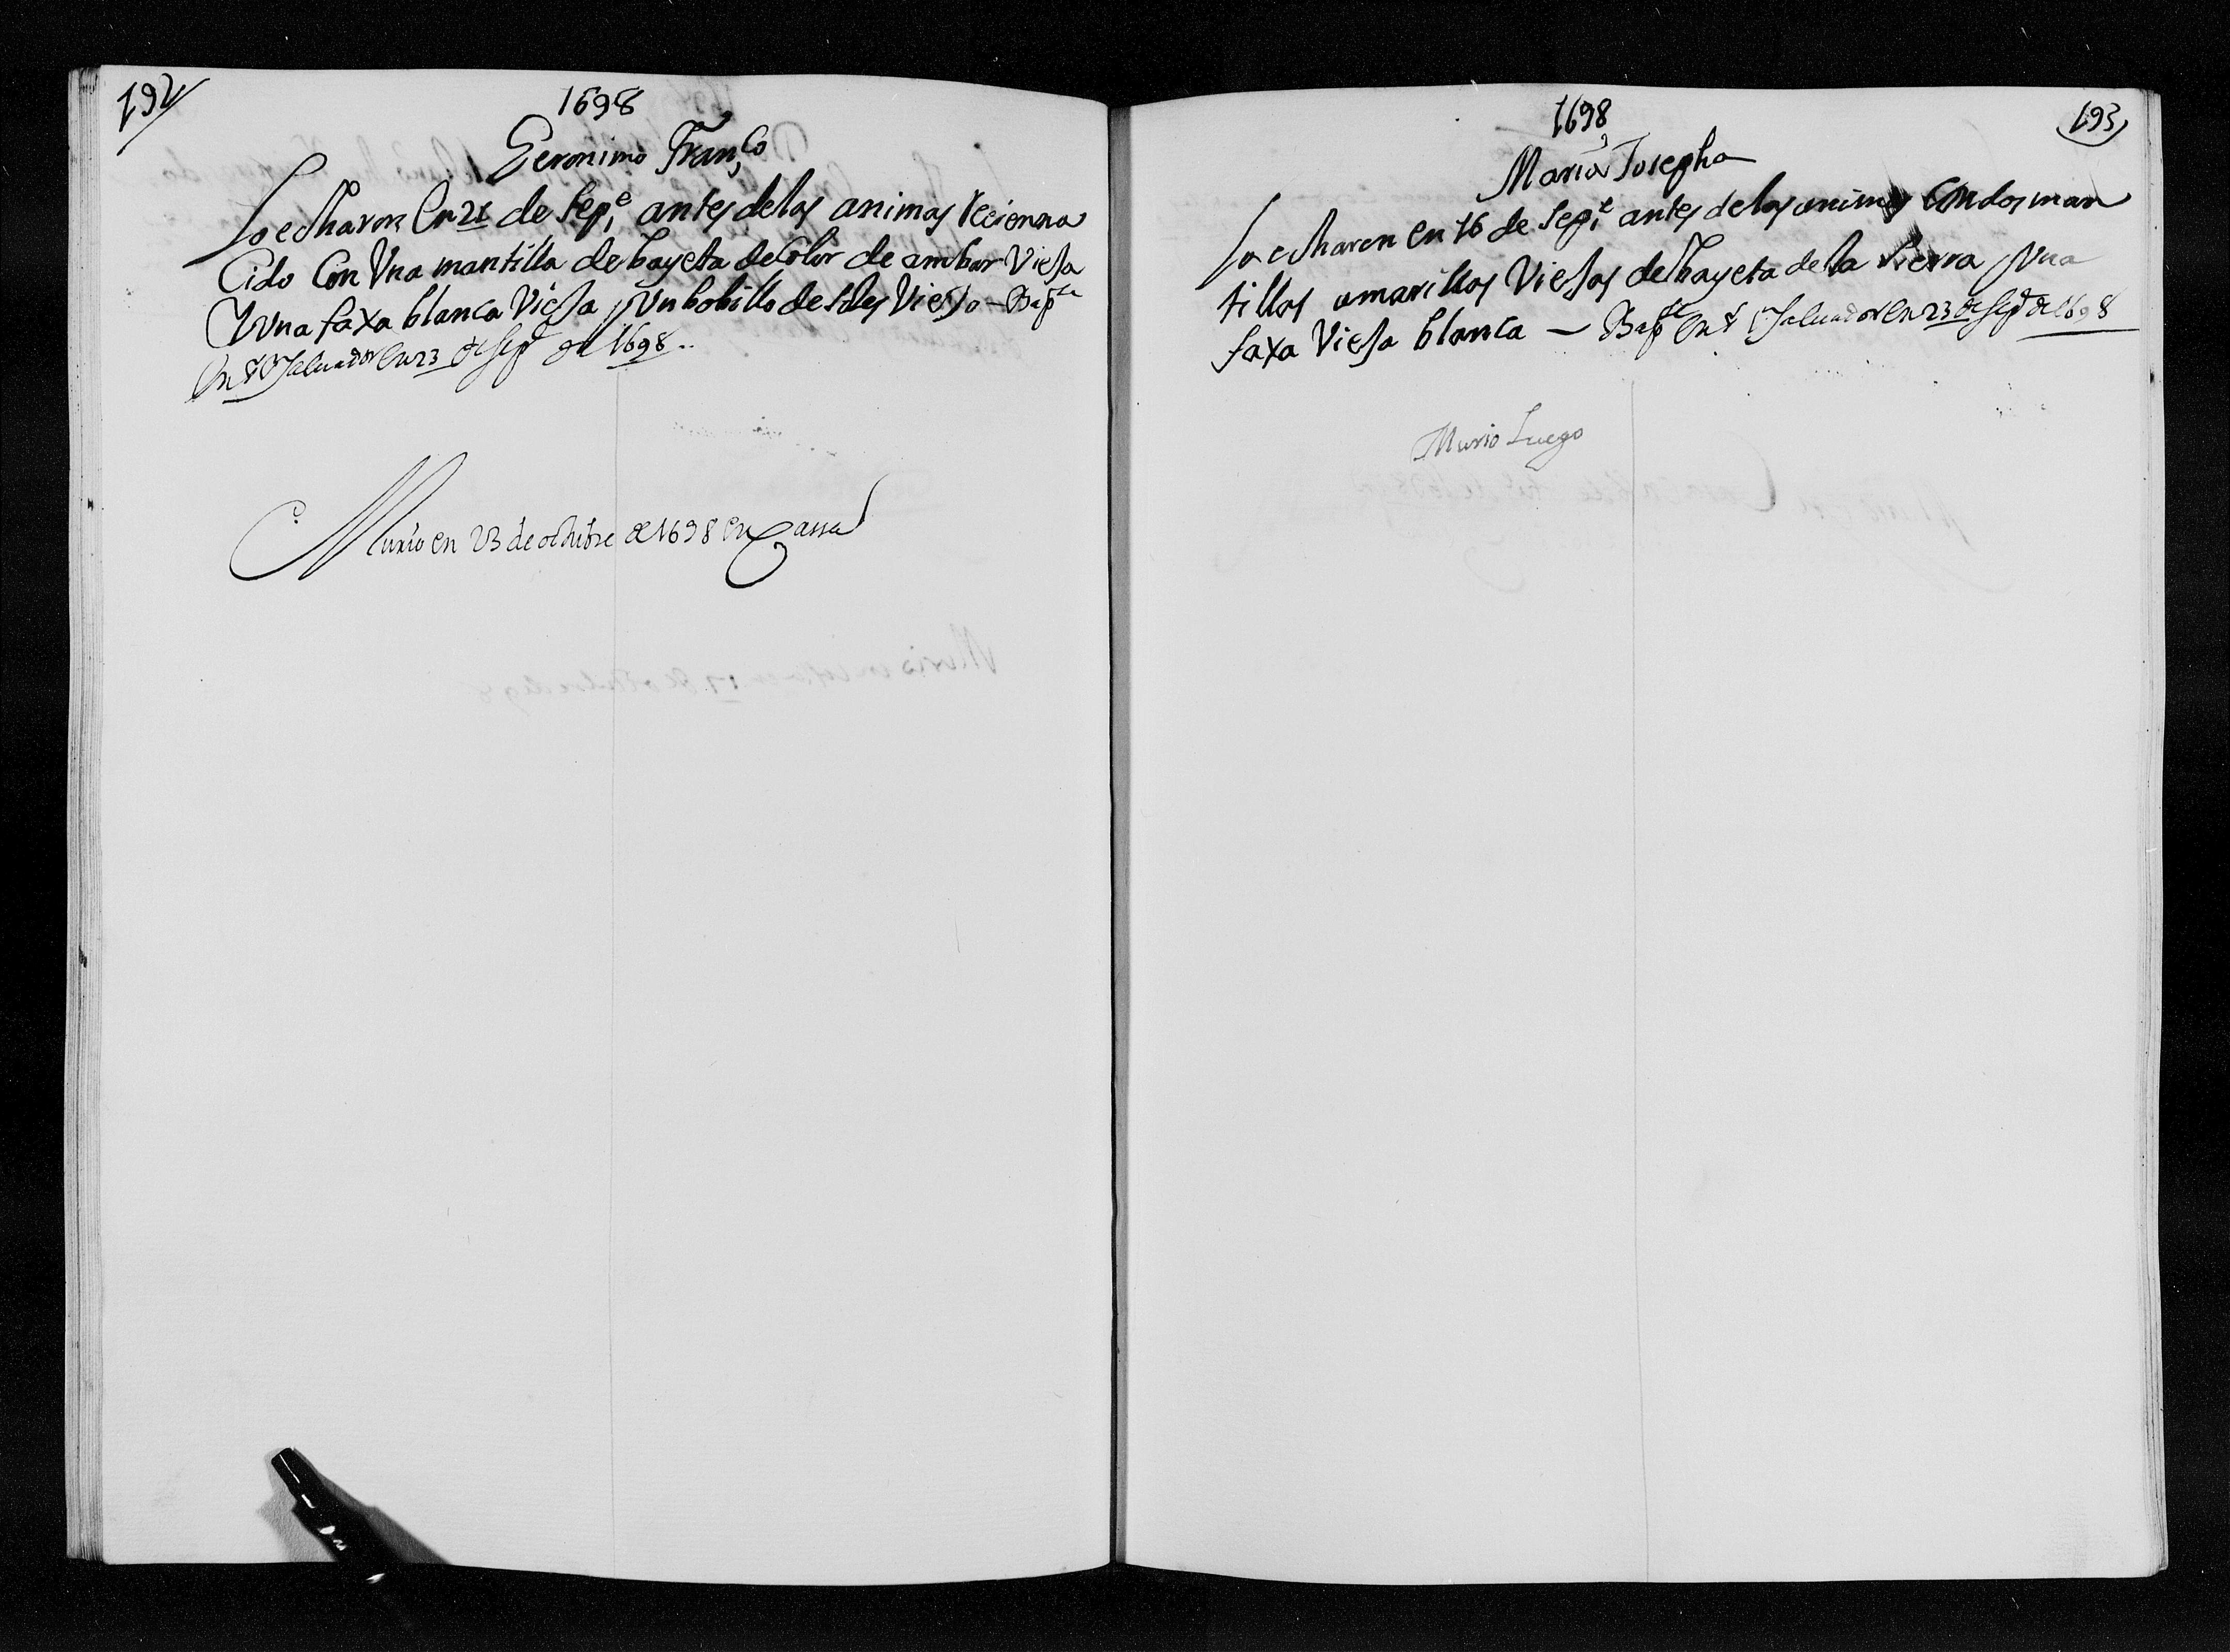 192
1698
Geronimo Franco
Lo echaron en 21 de sepe antes de las animas Recienna
Cido Con Una mantilla de bayeta de Color de ambar Vieja
Y Una faxa blanca Vieja y Un bobillo de Viejo - Bapto
en el Saluador en 23 de sepe de 1698..
Murio en 23 de octubre de 1698 en cassa
1698
193
Maria Josepha
La echaron en 16 de sepe antes de las animas Con dos man
tillas amarillas Viejas de bayeta de la tierra y Una
faxa Vieja blanca - Bapte en el Saluador en 23 de sepe de 1698
Murio Luego